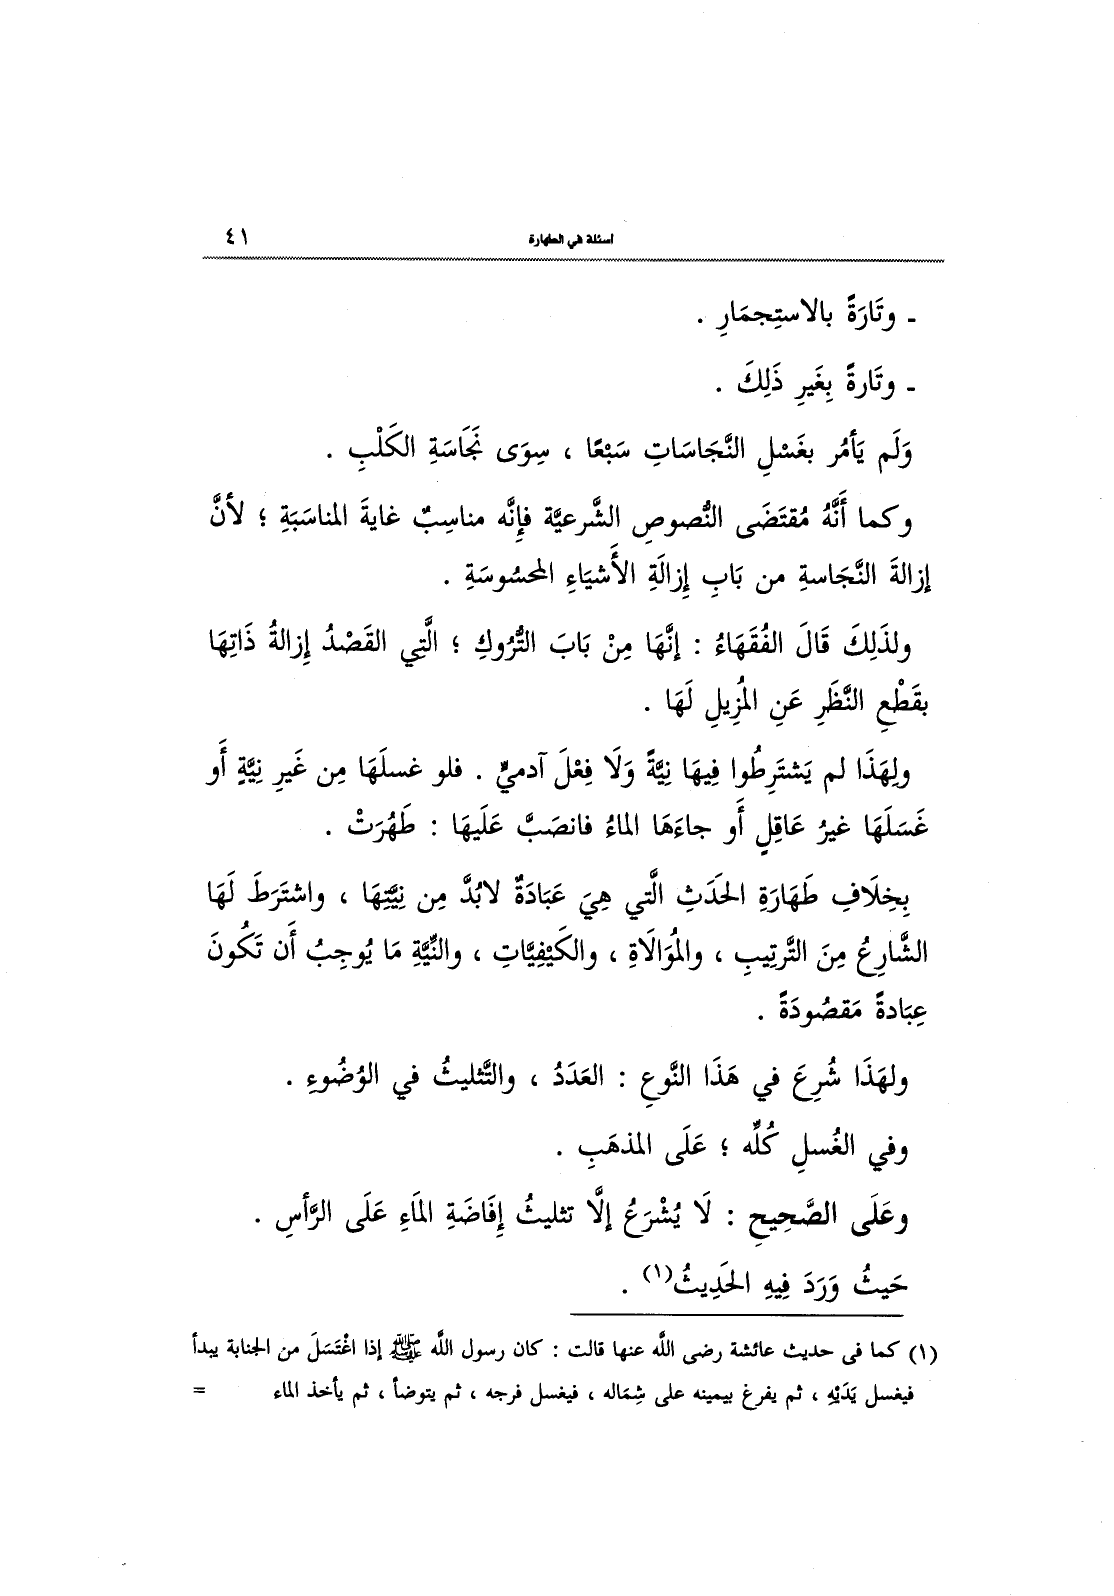 أسئلة في الطهارة ٤١
ـ وتَارَةً بالاستِجمَارِ .
ـ وتَارةً بِغَيرِ ذَلِكَ .
وَلَم يَأمُر بغَسْلِ النَّجَاسَاتِ سَبْعًا ، سِوَى نَجَاسَةِ الكَلْبِ .
وكما أَنَّهُ مُقتَضَى النُّصوصِ الشَّرعيَّة فإنَّه مناسِبٌ غايةَ المناسَبَةِ ؛ لأنَّ
إزالةَ النَّجَاسةِ من بَابِ إزالَةِ الأَشيَاءِ المحسُوسَةِ .
ولذَلِكَ قَالَ الفُقَهَاءُ : إنَّهَا مِنْ بَابَ التُّرُوكِ ؛ الَّتِي القَصْدُ إزالةُ ذَاتِهَا
بقَطْعِ النَّظَرِ عَنِ المُزِيلِ لَهَا .
ولِهَذَا لم يَشتَرِطُوا فِيهَا نِيَّةً وَلَا فِعْلَ آدميٍّ . فلو غسلَهَا مِن غَيرِ نِيَّةٍ أَو
غَسَلَهَا غيرُ عَاقِلٍ أَو جاءَهَا الماءُ فانصَبَّ عَلَيهَا : طَهُرَتْ .
بِخِلَافِ طَهَارَةِ الحَدَثِ الَّتي هِيَ عَبَادَةٌ لابُدَّ مِن نِيَّتِهَا ، واشتَرَطَ لَهَا
الشَّارِعُ مِنَ التَّرتِيبِ ، والمُوَالَاةِ ، والكَيْفِيَّاتِ ، والنِّيَّةِ مَا يُوجِبُ أَن تَكُونَ
عِبَادةً مَقصُودَةً .
ولهَذَا شُرِعَ في هَذَا النَّوعِ : العَدَدُ ، والتَّثليثُ في الوُضُوءِ .
وفي الغُسلِ كُلِّه ؛ عَلَى المذهَبِ .
وعَلَى الصَّحِيحِ : لَا يُشْرَعُ إلَّا تثليثُ إِفَاضَةِ المَاءِ عَلَى الرَّأسِ .
حَيثُ وَرَدَ فِيهِ الحَدِيثُ(١) .
(١) كما فى حديث عائشة رضى الله عنها قالت : كان رسول الله ﷺ إذا اغْتَسَلَ من الجنابة يبدأ
فيغسل يَدَيْهِ ، ثم يفرغ بيمينه على شِمَاله ، فيغسل فرجه ، ثم يتوضأ ، ثم يأخذ الماء =